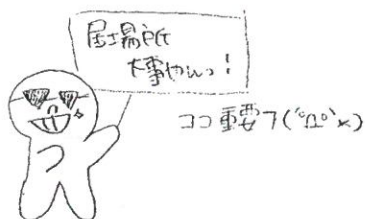 居場所
大事やんっ!
ココ重要フ(°Д°x)